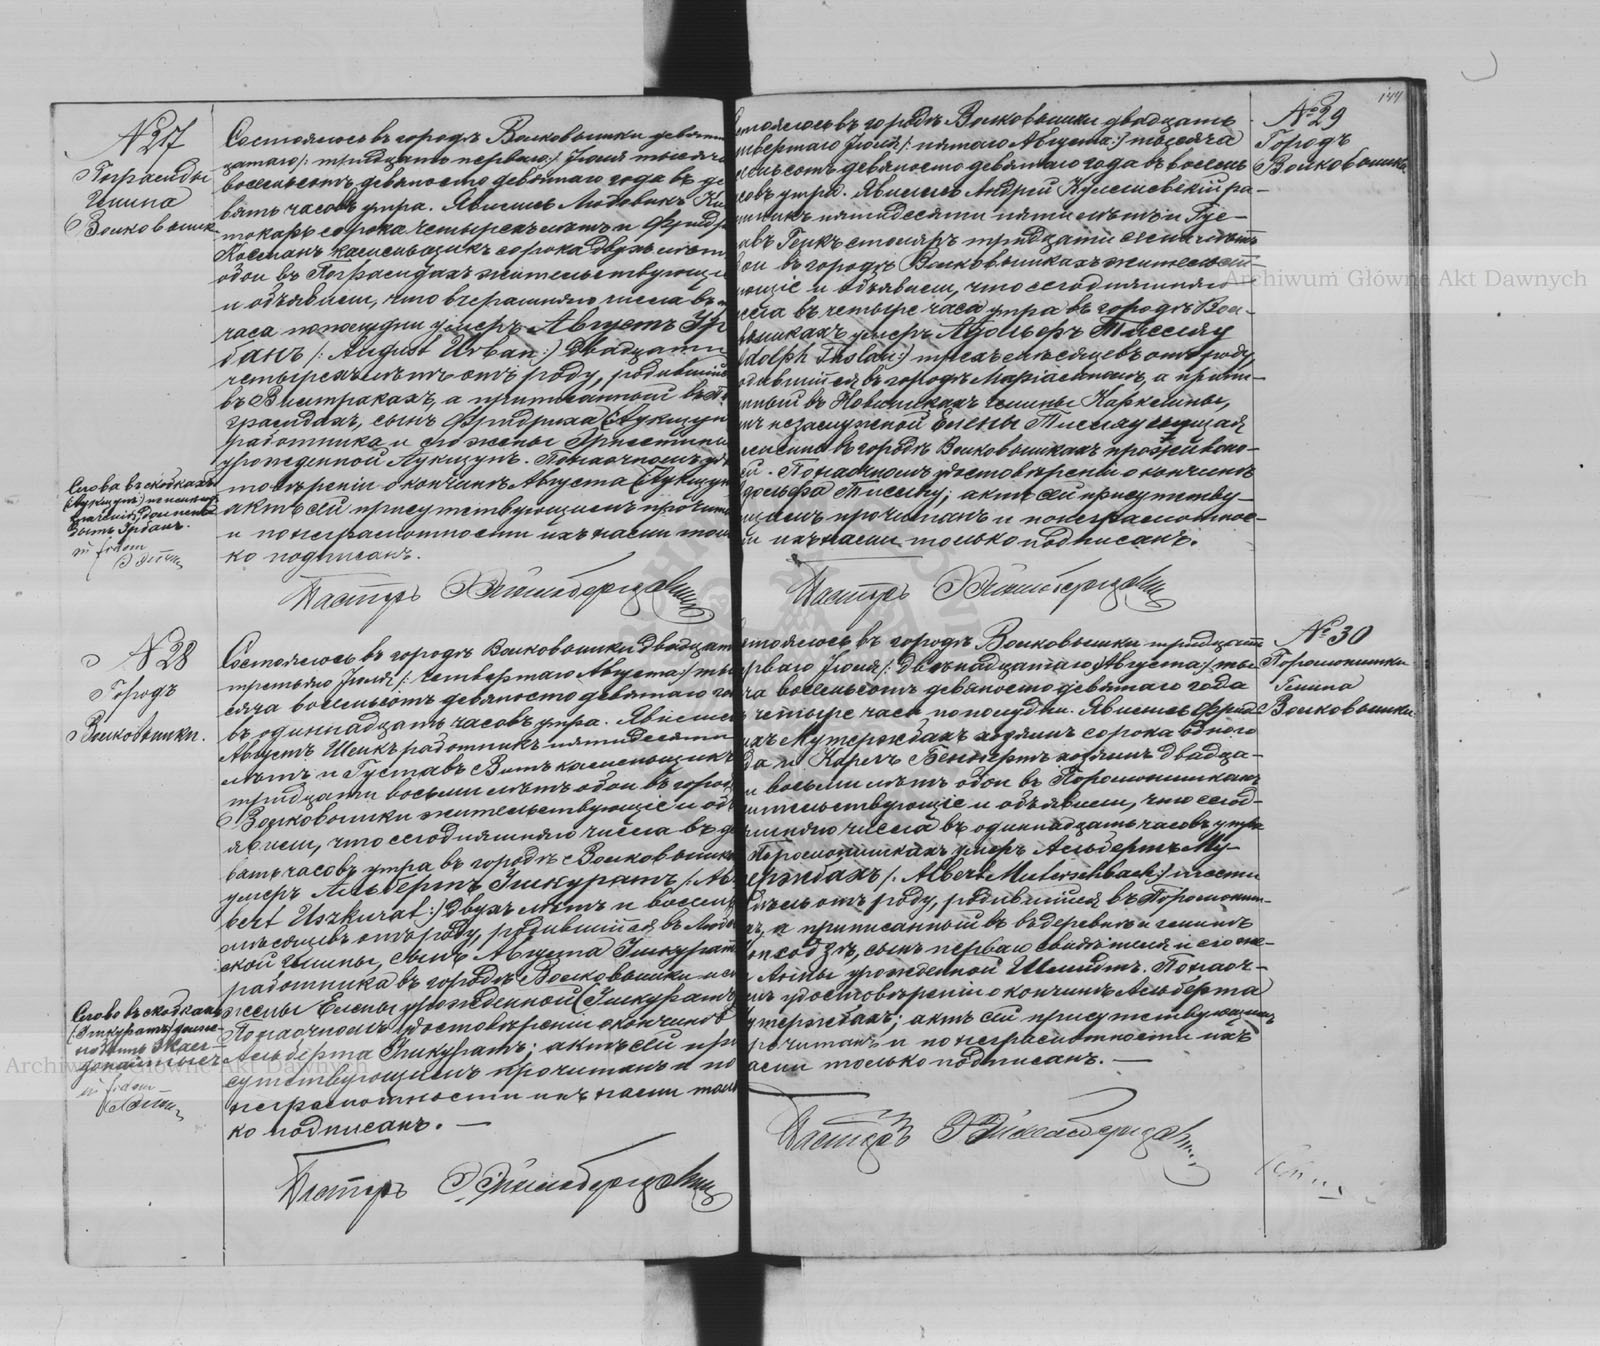 № 27
Пограмды
Гмина
Волковышки
Состоялось въ городѣ Волковышки девят
цатаго /: тридцать перваго :/ Іюля тысяча
восемьсотъ девяносто девятаго года въ де
вять часовъ утра. Явились Людовикъ
токарь сорока четырехъ лѣтъ и Фридр
каменьщикъ сорока двухъ лѣтъ
обои въ жительствующіе
и объявили, что вчерашняго числа въ
часа пополудни умеръ Августъ Ур
банъ /: August Urban :/ двадцати
четырехъ лѣтъ отъ роду, родившійся
въ Вистракахъ, а приписанный въ П
грамдахъ, сынъ Фридриха (Лукшунъ
работника и его жены Христины
урожденной Лукшунъ. По наочномъ удо
стовѣреніи о кончинѣ Августа (Лукшунъ
актъ сей присутствующимъ прочитанъ
и по неграмотности ихъ нами толь
ко подписанъ.
Пасторъ
Слова въ скобкахъ
(Лукшунъ)
Урбанъ.
№ 28
Городъ
Волковышки.
Состоялось въ городѣ Волковышки двадцать
третьяго Іюля /: четвертаго Августа :/ ты
сяча восемьсотъ девяносто девятаго го
въ одиннадцать часовъ утра. Явились
Августъ работникъ пятидесяти
лѣтъ и Густавъ Витъ каменьщикъ
тридцати восьми лѣтъ обои въ городѣ
Волковышки жительствующіе и объ
явили, что сегодняшняго числа въ де
вять часовъ утра въ городѣ Волковышк
умеръ Альбертъ Ушкуратъ /: Al
bert Uszkurat :/ двухъ лѣтъ и восемь
мѣсяцевъ отъ роду, родившійся въ
ской гмины, сынъ Августа Ушкуратъ
работника въ городѣ Волковышки и его
жены Елены урожденной (Ушкуратъ
По наочномъ удостовѣреніи о кончинѣ
Альберта Ушкуратъ; актъ сей при
сутствующимъ прочитанъ и по
неграмотности ихъ нами толь
ко подписанъ. —
Пасторъ
Слово въ скобкахъ
(Ушкуратъ)
144
№ 29
Городъ
Волковышки
стоялось въ городѣ Волковышки двадцать
твертаго Іюля /: пятаго Августа :/ тысяча
семьсотъ девяносто девятаго года въ восемь
совъ утра. Явились Андрей Кулешевскій ра-
тникъ пятидесяти пяти лѣтъ и Гус-
авъ Генкъ столяръ тридцати семи лѣтъ
ои въ городѣ Волковышкахъ жительст-
ующіе и объявили, что сегодняшняго
исла въ четыре часа утра въ городѣ Вол-
вышкахъ умеръ Адольфъ Тислау
dolph Tislau :/ трехъ мѣсяцевъ отъ роду
одившійся въ городѣ Маріамполѣ, а припи-
нный въ Новишкахъ гмины Каркелины,
нъ незамужней Елены Тислау
въ городѣ Волковышкахъ
й. По наочномъ удостовѣреніи о кончинѣ
дольфа Тислау; актъ сей присутству-
щимъ прочитанъ и по неграмотнос-
и ихъ нами только подписанъ.
Пасторъ
№ 30
Поромонишки
Гмина
Волковышки
стоялось въ городѣ Волковышки тридцать
рваго Іюля /: двѣнадцатаго Августа :/ тыс
ча восемьсотъ девяносто девятаго года
четыре часа пополудни. Явились Фрид-
ихъ Мутершбахъ хозяинъ сорока одного
да и Карлъ Беннертъ хозяинъ двадца-
и восьми лѣтъ обои въ Поромонишкахъ
ительствующіе и объявили, что сегод-
няшняго числа въ одиннадцать часовъ утра
Поромонишкахъ умеръ Альбертъ Му-
ершбахъ /: Albert Muterschbach :/ шести
отъ роду, родившійся въ Поромониш-
ахъ, а приписанный въ деревнѣ и гминѣ
сынъ перваго свидѣтеля и его же-
Анны урожденной Шмидтъ. По наоч-
мъ удостовѣреніи о кончинѣ Альберта
утершбахъ; актъ сей присутствующимъ
рочитанъ и по неграмотности ихъ
нами только подписанъ. —
Пасторъ
Archiwum Główne Akt Dawnych
Archiwum Główne Akt Dawnych